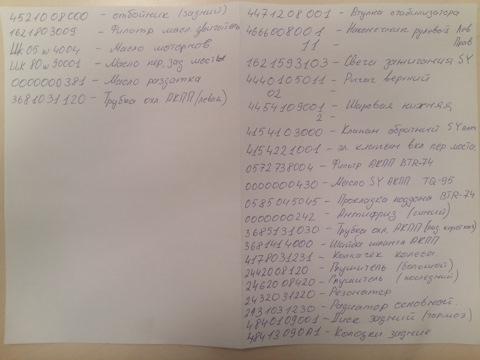 4521008000 - отбойник (задний)
1621803009 - Фильтр масл двигат
ШК 05w4004 - Масло моторное
ШК 80w90001 - Масло пер, зад мосты
0000000381 - Масло раздатка
3681031120 - Трубка охл АКПП (левая)
4471208001 - Втулка стабилизатора
4666008001 - Наконечник рулевой Лев
11 - Прав
1621593103 - Свеча зажигания SY
4440105011 - Рычаг верхний
02 -
4454109001 - Шаровая нижняя
2 -
4154103000 - Клапан обратный SY
4154221001 - эл. клапан вкл пер моста
0572738004 - Фильтр АКПП BTR-74
0000000430 - Масло SY АКПП TQ-95
0585045045 - Прокладка поддона BTR-74
0000000242 - Антифриз (синий)
3685131030 - Трубка охл. АКПП
3681414000 - Шайба шланга АКПП
4178031231 - Колпачек колеса
2442008120 - Глушитель (большой)
2462008420 - Глушитель (последний)
2432031220 - Резонатор
2131031230 - Радиатор основной
4840109001 - Диск задний (тормоз)
48413090A1 - Колодки задние